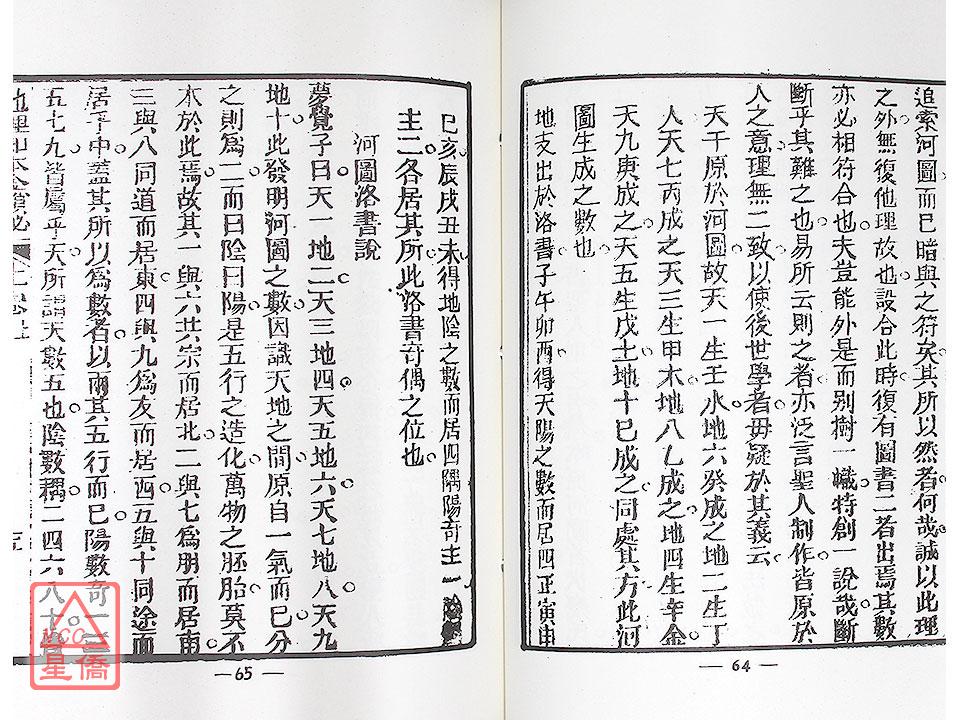 追索河圖而已暗與之符矣其所以然者何哉誠以此理
之外無復他理故也設合此時復有圖書二者出焉其數
亦必相符合也夫豈能外是而別樹一幟特創一說哉斷
斷乎其難之也易所云則之者亦泛言聖人制作皆原於
人之意理無二致以俟後世學者毋疑於其義云
天干原於河圖故天一生壬水地六癸成之地二生丁
人天七丙成之天三生甲木地八乙成之地四生辛金
天九庚成之天五生戊土地十巳成之同處其方此河
圖生成之數也
地支出於洛書子午卯酉得天陽之數而居四正寅申
64
巳亥辰戌丑未得地陰之數而居四隅陽奇主一
主二各居其所此洛書奇偶之位也
河圖洛書說
夢覺子曰天一地二天三地四天五地六天七地八天九
地十此發明河圖之數因識天地之間原自一氣而巳分
之則為二而曰陰曰陽是五行之造化萬物之胚胎莫不
本於此焉故其一與六共宗而居北二與七爲朋而居南
三與八同道而居東四與九爲友而居西五與十同途而
居乎中蓋其所以爲數者以兩其五行而巳陽數奇一三
五七九皆屬乎天所謂天數五也陰數耦二四六八十皆
65
MCC
星僑